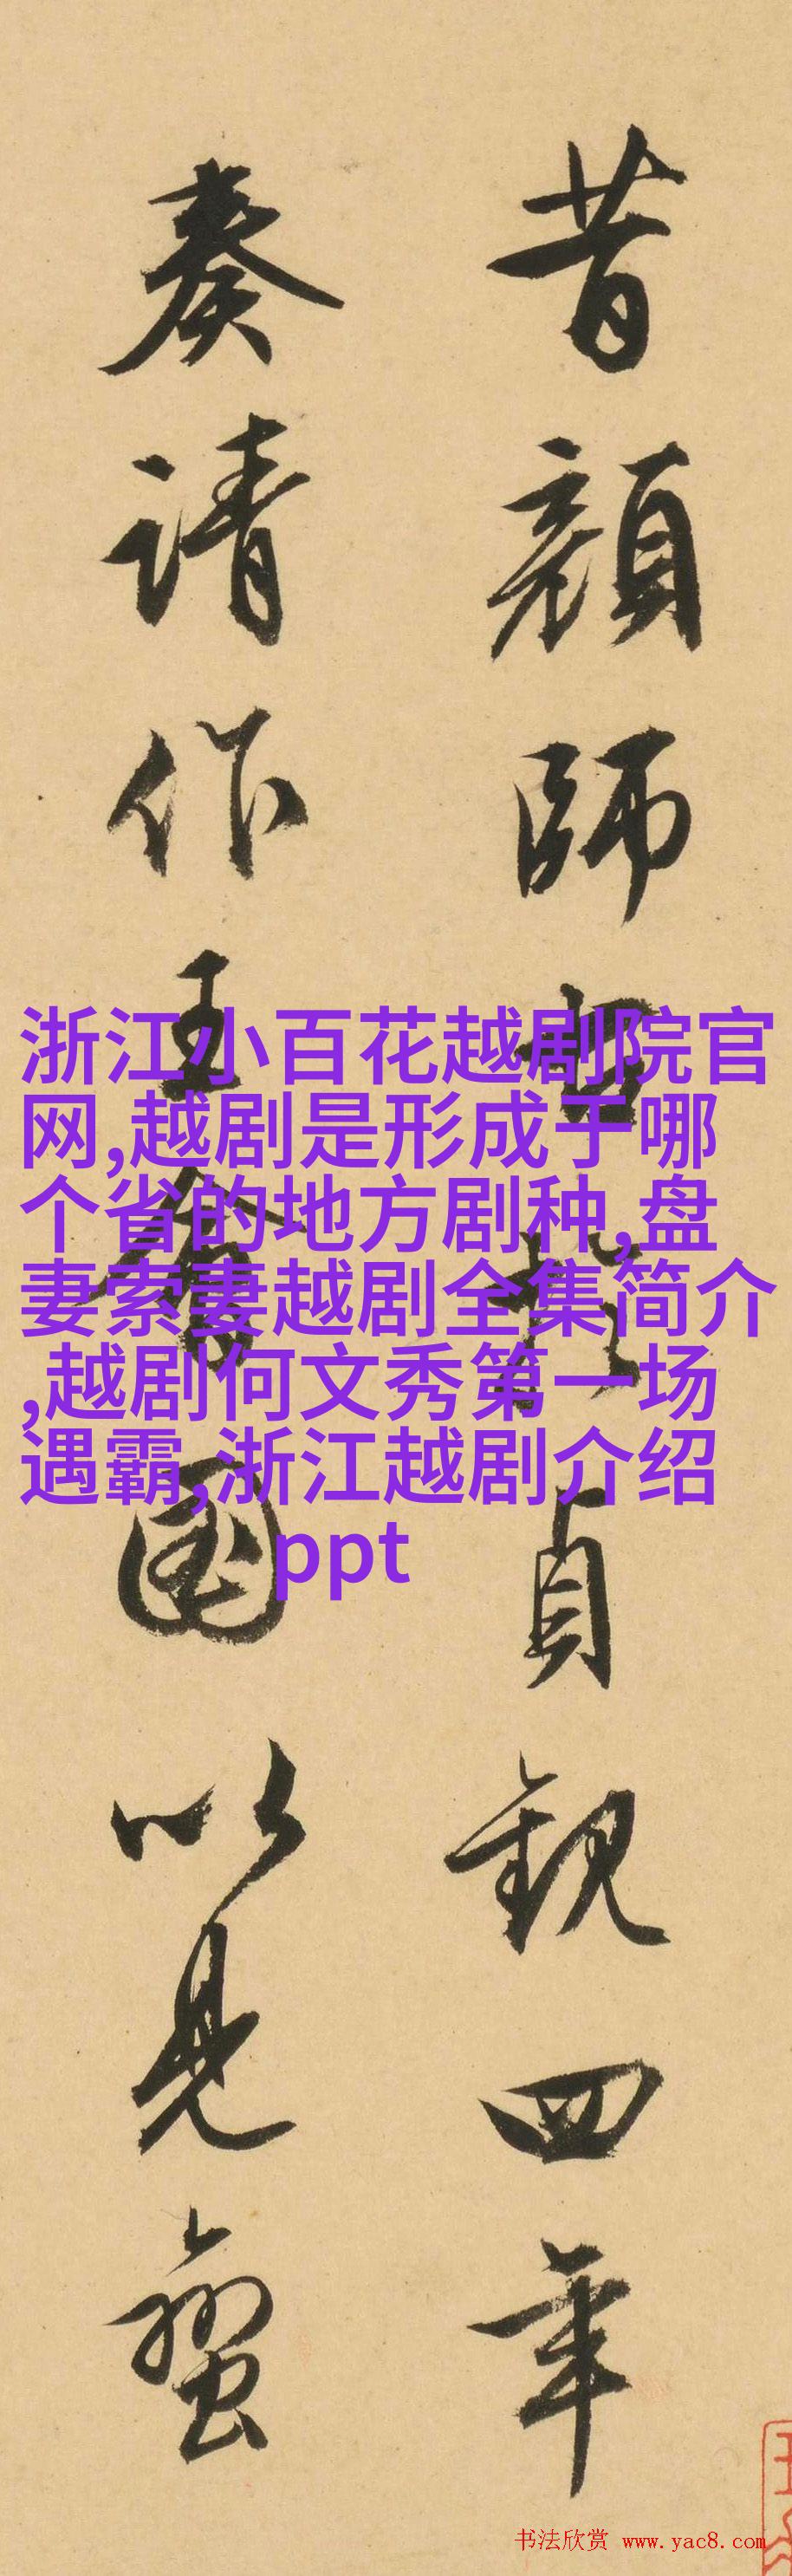 昔顏師古於貞觀四年
奏請作王會圖以見蠻
浙江小百花越剧院官
网,越剧是形成于哪
个省的地方剧种,盘
妻索妻越剧全集简介
,越剧何文秀第一场
遇霸,浙江越剧介绍
ppt
书法欣赏 www.yac8.com